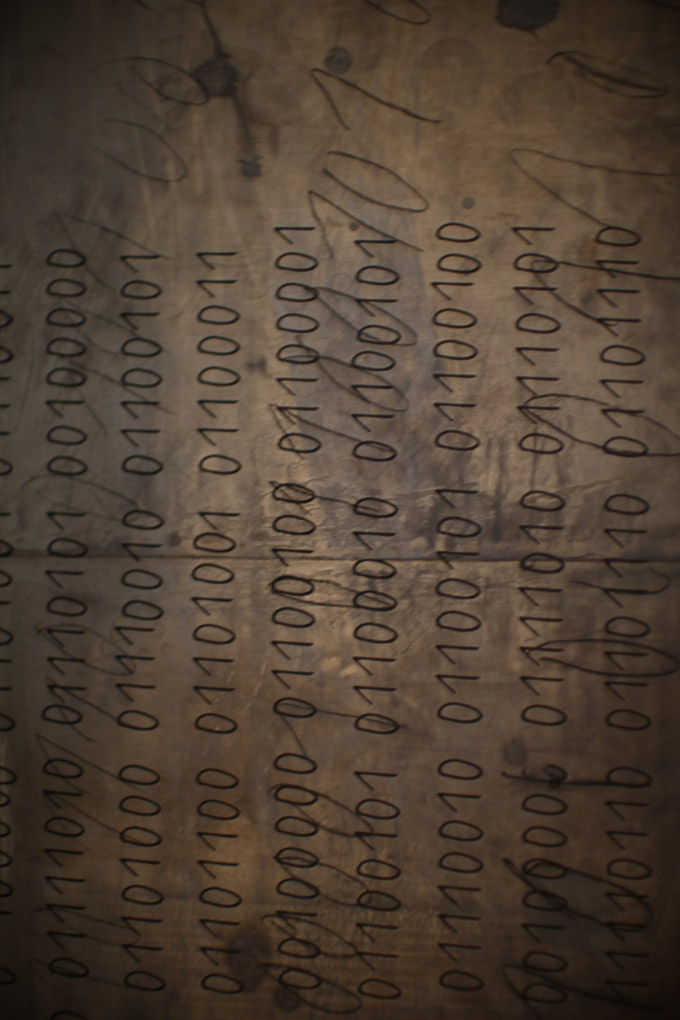 01111010 01110101 00100000
01101000 01110010 01100101
01101100 01101001 01100011
00100000 01100100 01100001
01100101 01100010 01100101
01110010 01100101 01100100
00100000 01111010 01110101
11110110 01101110 01101110